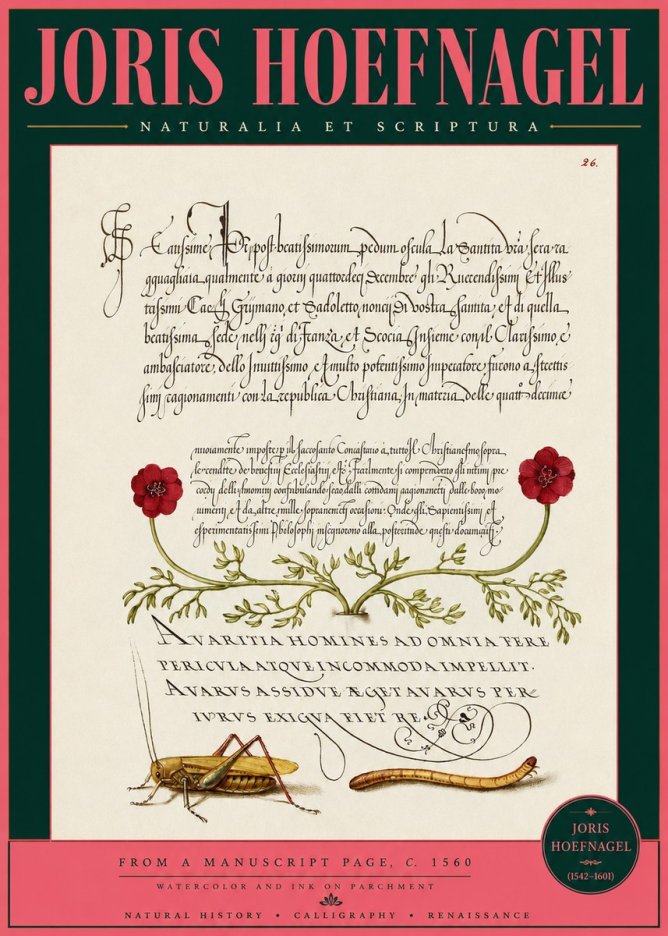 JORIS HOEFNAGEL
NATURALIA ET SCRIPTURA
26.
Eatissime Pr, post beatissimorum pedum oscula La Santita vra sera ra
gguagliata qualmente a giorni quattordeci Decembre gli Ruerendissimi Et Illus
trissimi Grymano, et Sadoletto, noncij Di vostra santita, et di quella
beatissima sede, nelli di Franza, et Scocia Insieme con il Clarissimo, e
ambasciatore dello Inuittissimo, et multo potentissimo Imperatore furono a strettis
simi ragionamenti con La republica Christiana, In materia Delle decime
nuouamente imposte il sacosanto a tutto Il Christianesmo sopra
le rendite de beneficij Ecclesiastici, si comprendeno gli intimi pre
cordij delli confabulando
et da altre mille occasioni: Onde gli Sapientissimi et
esperimentatissimi Philosophi insegnorono alla posteritude questi
AVARITIA HOMINES AD OMNIA FERE
PERICVLA ATQVE INCOMMODA IMPELLIT.
AVARVS ASSIDVE ÆGET AVARVS PER
IVRVS EXIGVA FIET RE
FROM A MANUSCRIPT PAGE, C. 1560
WATERCOLOR AND INK ON PARCHMENT
NATURAL HISTORY • CALLIGRAPHY • RENAISSANCE
JORIS
HOEFNAGEL
(1542–1601)